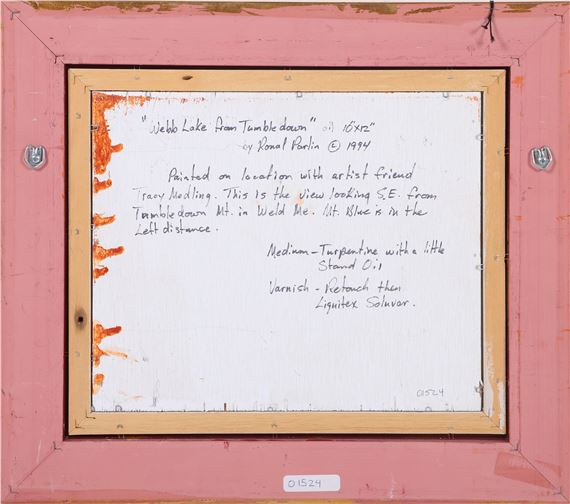 "Webb Lake from Tumbledown" oil 10"x12"
by Ronal Parlin © 1994
Painted on location with artist friend
Tracy Medling. This is the view looking S.E. from
Tumbledown Mt. in Weld Me. Mt. Blue is in the
Left distance.
Medium - Turpentine with a little
Stand Oil
Varnish - Retouch then
Liquitex Soluvar.
01524
01524